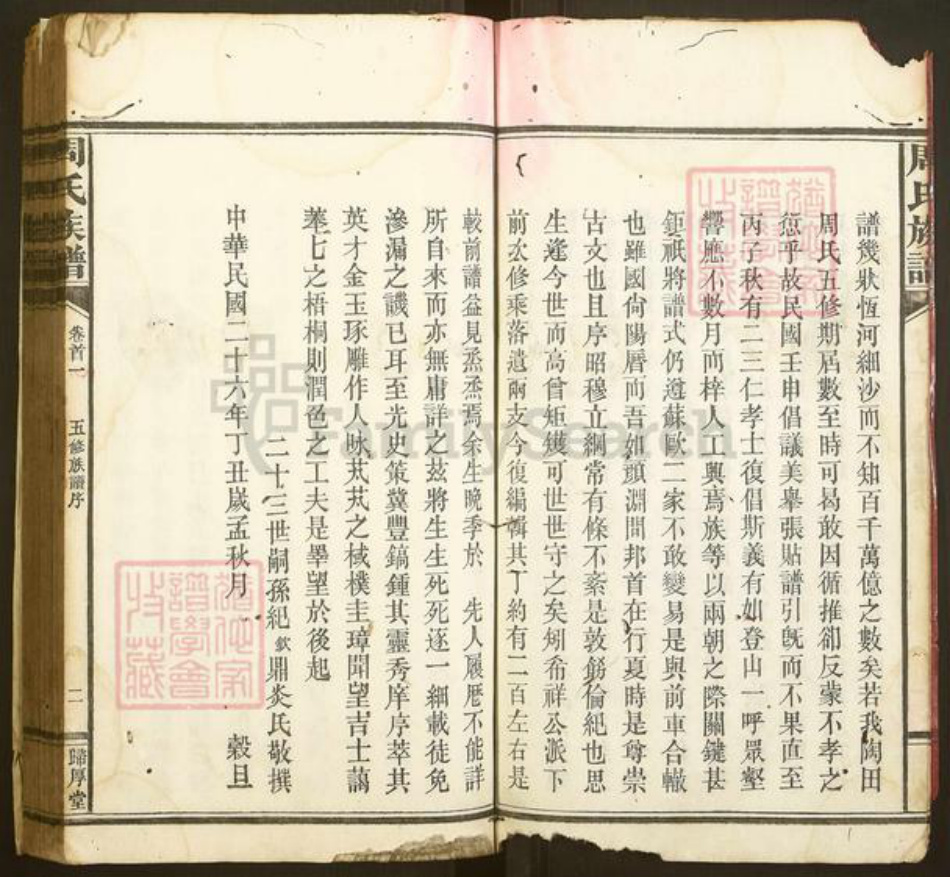 周氏族譜
譜幾狀恆河細沙而不知百千萬億之數矣若我陶田
周氏五修期屆數至時可曷敢因循推卻反蒙不孝之
愆乎故民國壬申倡議美舉張貼譜引旣而不果直至
丙子秋有二三仁孝士復倡斯義有如登山一呼眾壑
響應不數月而梓人工興焉族等以兩朝之際關鍵甚
鉅祇將譜式仍遵蘇歐二家不敢變易是與前車合轍
也雖國尙陽曆而吾如顏淵問邦首在行夏時是尊崇
古文也且序昭穆立綱常有條不紊是敦篤倫紀也思
生逢今世而高曾矩矱可世世守之矣矧希祥公派下
前次修乘落遺兩支今復編輯其丁約有二百左右是
較前譜益見烝烝焉余生晚季於 先人履歷不能詳
所自來而亦無庸詳之茲將生生死死逐一細載徒免
滲漏之譏已耳至光史策冀豐鎬鍾其靈秀庠序萃其
英才金玉琢雕作人咏芃芃之棫樸圭璋聞望吉士藹
菶七之梧桐則潤色之工夫是畢望於後起
二十三世嗣孫紀欽鼎炎氏敬撰
中華民國二十六年丁丑歲孟秋月 穀旦
周氏族譜
卷首一
五修族譜序
二
歸厚堂
FamilySearch